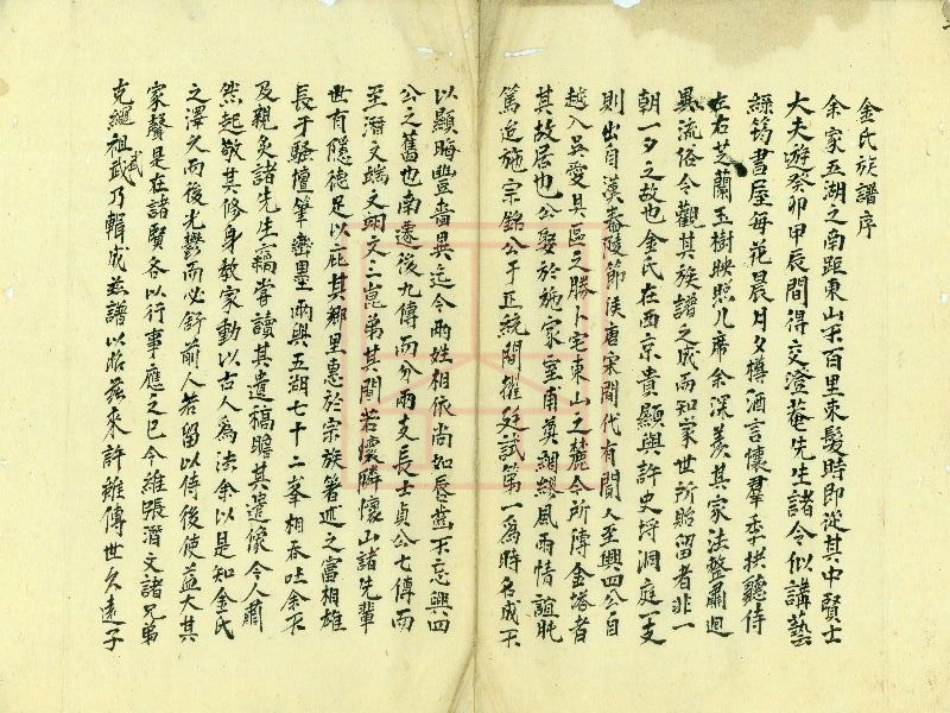 金氏族譜序
余家五湖之南距東山不百里束髮時即從其中賢士
大夫遊癸卯甲辰間得交澄菴先生諸令似講藝
綠筠書屋每花晨月夕樽酒言懷羣季拱聽侍
左右芝蘭玉樹映照几席余深羨其家法整肅迥
異流俗今觀其族譜之成而知家世所貽留者非一
朝一夕之故也金氏在西京貴顯與許史埒洞庭一支
則出自漢秺陵節侯唐宋間代有聞人至興四公自
越入吳愛具區之勝卜宅東山之麓今所傳金塔者
其故居也公娶於施家室甫奠綢繆風雨情誼肫
篤迨施宗銘公于正統間擢廷試第一為時名成不
以顯晦豐嗇異迄今兩姓相依尚如唇齒不忘興四
公之舊也南遷後九傳而分兩支長士貞公七傳而
至潛文端文瑚文三崑弟其間若懷隣懷山諸先輩
世有隱德足以庇其鄉里惠於宗族著述之富相雄
長于騷壇筆巒墨雨與五湖七十二峯相吞吐余不
及親炙諸先生竊嘗讀其遺稿瞻其遺像令人肅
然起敬其修身教家動以古人為法余以是知金氏
之澤久而後光鬱而必舒前人若留以俟後使益大其
家聲是在諸賢各以行事應之已今維賬潛文諸兄弟
克繩祖武乃輯成茲譜以昭茲來許雖傳世久遠子
武